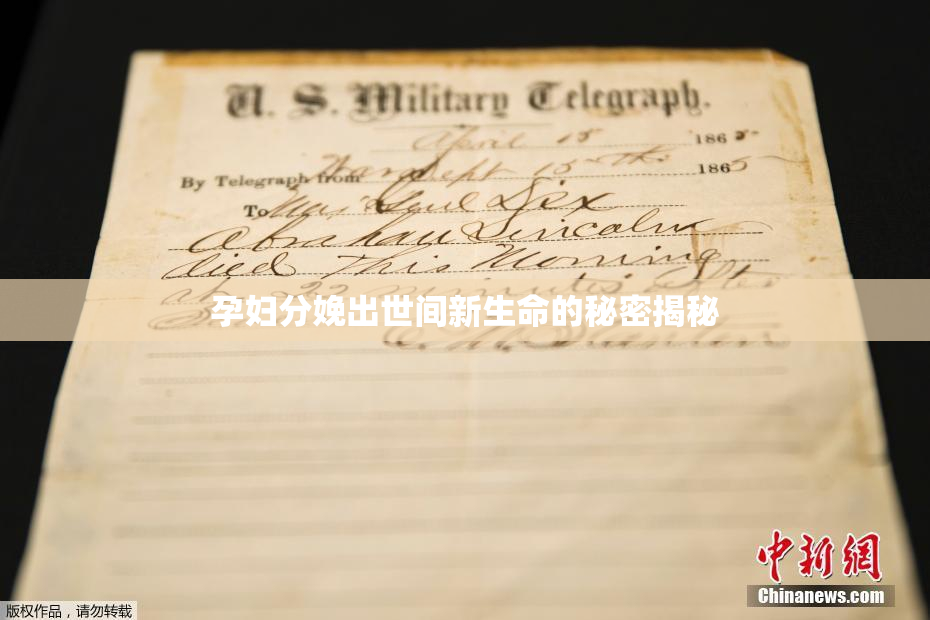 U. S. Military Telegraph.
April 15 1865
By Telegraph from War Dept 15th 1865
To Maj Genl Dix
Abraham Lincoln
died This Morning
at 22 minutes after
孕妇分娩出世间新生命的秘密揭秘
E. M. Stanton
中新网
Chinanews.com
版权作品，请勿转载